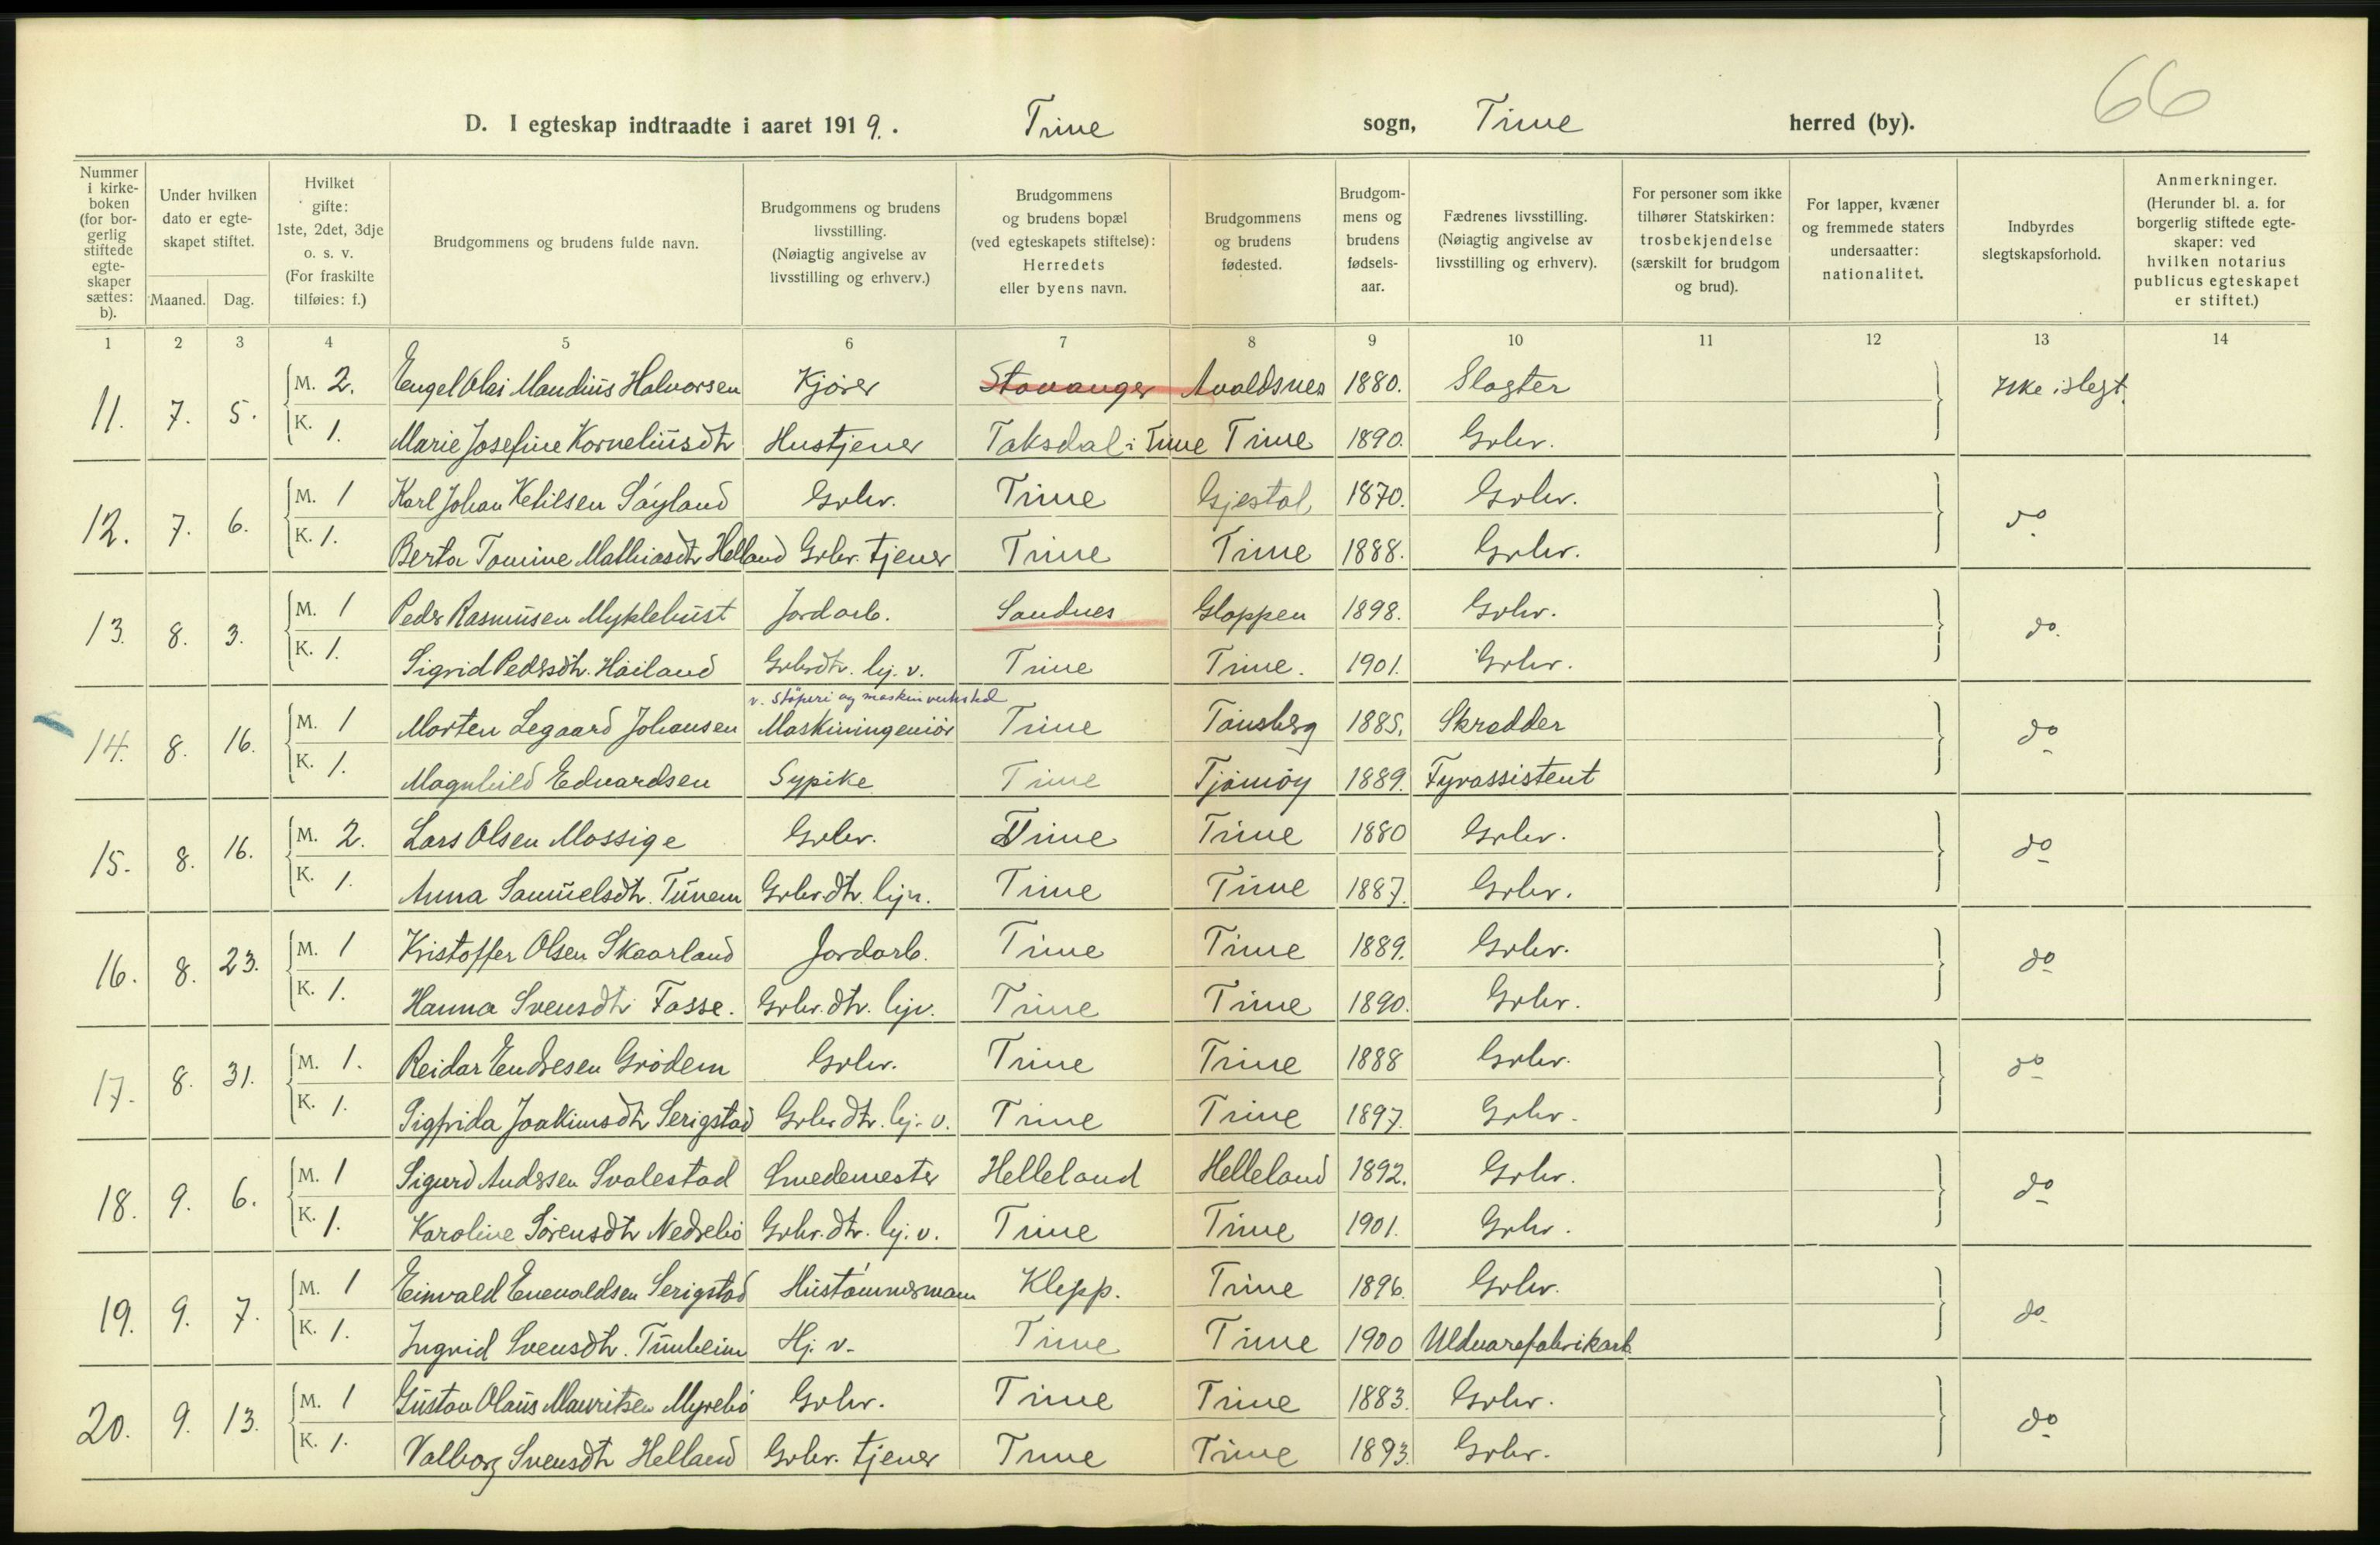 66
D. I egteskap indtraadte i aaret 1919. Time sogn, Time herred (by).
Nummer i kirkeboken (for borgerlig stiftede egteskaper sættes: b).
Under hvilken dato er egteskapet stiftet.
Maaned. Dag.
Hvilket gifte: 1ste, 2det, 3dje o. s. v. (For fraskilte tilføies: f.)
Brudgommens og brudens fulde navn.
Brudgommens og brudens livsstilling. (Nøiagtig angivelse av livsstilling og erhverv.)
Brudgommens og brudens bopæl (ved egteskapets stiftelse): Herredets eller byens navn.
Brudgommens og brudens fødested.
Brudgommens og brudens fødselsaar.
Fædrenes livsstilling. (Nøiagtig angivelse av livsstilling og erhverv).
For personer som ikke tilhører Statskirken: trosbekjendelse (særskilt for brudgom og brud).
For lapper, kvæner og fremmede staters undersaatter: nationalitet.
Indbyrdes slegtskapsforhold.
Anmerkninger. (Herunder bl. a. for borgerlig stiftede egteskaper: ved hvilken notarius publicus egteskapet er stiftet.)
1 2 3 4 5 6 7 8 9 10 11 12 13 14
11. 7. 5. M. 2. Engel Olai Mandius Halvorsen Kjører Stavanger Avaldsnes 1880. Slagter Ikke i slegt.
K. 1. Marie Josefine Korneliusdtr Hustjener Taksdal i Time Time 1890. Grbr.
12. 7. 6. M. 1 Karl Johan Ketilsen Søyland Grbr. Time Gjestal 1870. Grbr. do
K. 1. Berta Tomine Mathiasdtr Helland Grbr. tjener Time Time 1888. Grbr.
13. 8. 3. M. 1 Peder Rasmusen Myklebust Jordarb. Sandnes Gloppen 1898. Grbr. do.
K. 1. Sigrid Pedersdtr. Høiland Grbrdtr. hj. v. Time Time. 1901. Grbr.
v. Støperi og maskinverksted
14. 8. 16. M. 1 Morten Legaard Johansen Maskiningeniør Time Tønsberg 1885. Skrædder do
K. 1. Magnhild Edvardsen Sypike Time Tjømøy 1889. Fyrassistent
15. 8. 16. M. 2. Lars Olsen Mossige Grbr. Time Time 1880 Grbr. do
K. 1. Anna Samuelsdtr. Tunem Grbr.dtr. hjv. Time Time 1887. Grbr.
16. 8. 23. M. 1 Kristoffer Olsen Skaarland Jordarb. Time Time 1889. Grbr. do
K. 1. Hanna Svensdtr Fosse. Grbr.dtr. hjv. Time Time 1890. Grbr.
17. 8. 31. M. 1. Reidar Endresen Grødem Grbr. Time Time 1888 Grbr. do
K. 1. Sigfrida Joakimsdtr Serigstad Grbr dtr. hj. v. Time Time 1897. Grbr.
18. 9. 6. M. 1 Sigurd Andersen Svalestad Smedemester Helleland Helleland 1892. Grbr. do
K. 1. Karoline Sørensdtr Nedrebø Grbr. dtr. hj. v. Time Time 1901. Grbr.
19. 9. 7. M. 1 Einvald Enevaldsen Serigstad Hustømmermann Klepp. Time 1896. Grbr. do
K. 1. Ingrid Svensdtr. Tunheim Hj. v. Time Time 1900 Uldvarefabrikarb.
20. 9. 13. M. 1 Gustav Olaus Mauritsen Myrebø Grbr. Time Time 1883. Grbr. do
K. 1. Valborg Svensdtr Helland Grbr. tjener Time Time 1893. Grbr.